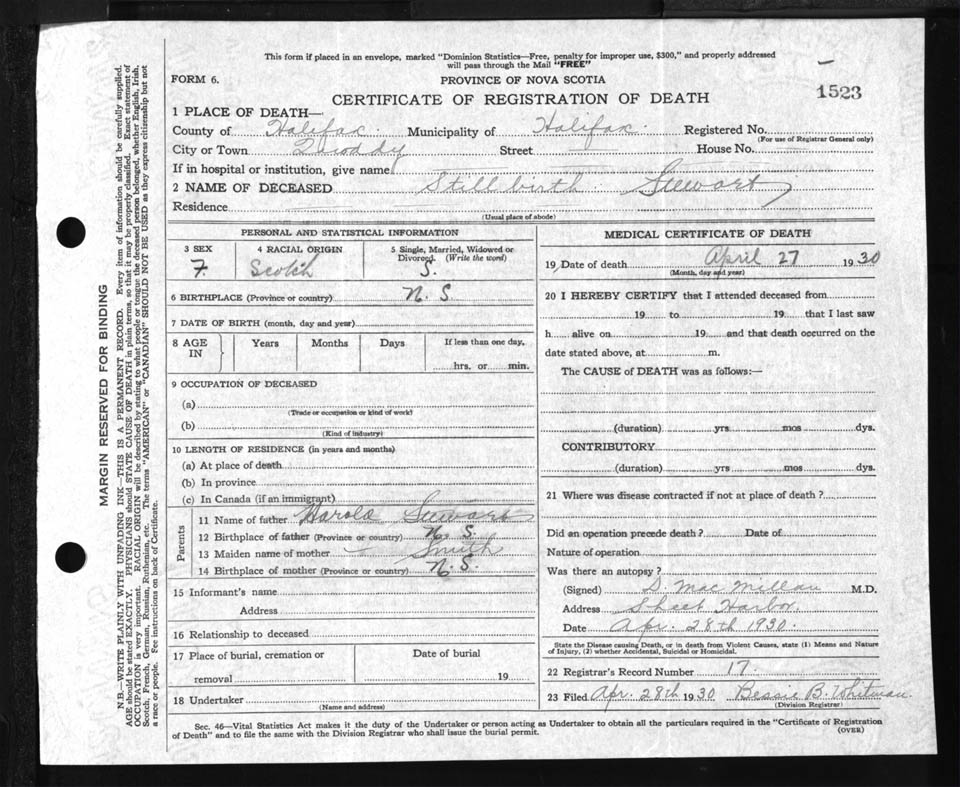 This form if placed in an envelope, marked "Dominion Statistics—Free, penalty for improper use, $300," and properly addressed
will pass through the Mail "FREE"
FORM 6.
PROVINCE OF NOVA SCOTIA
CERTIFICATE OF REGISTRATION OF DEATH
1523
1 PLACE OF DEATH—
County of Halifax Municipality of Halifax Registered No.
(For use of Registrar General only)
City or Town Quoddy Street House No.
If in hospital or institution, give name
2 NAME OF DECEASED Stillbirth Stewart
Residence
(Usual place of abode)
PERSONAL AND STATISTICAL INFORMATION
3 SEX 4 RACIAL ORIGIN 5 Single, Married, Widowed or
Divorced. (Write the word)
F. Scotch S.
6 BIRTHPLACE (Province or country) N. S.
7 DATE OF BIRTH (month, day and year)
8 AGE Years Months Days If less than one day,
IN hrs. or min.
9 OCCUPATION OF DECEASED
(a)
(Trade or occupation or kind of work)
(b)
(Kind of industry)
10 LENGTH OF RESIDENCE (in years and months)
(a) At place of death
(b) In province
(c) In Canada (if an immigrant)
Parents
11 Name of father Harold Stewart
12 Birthplace of father (Province or country) N. S.
13 Maiden name of mother — Smith
14 Birthplace of mother (Province or country) N. S.
15 Informant's name
Address
16 Relationship to deceased
17 Place of burial, cremation or Date of burial
removal 19
18 Undertaker
(Name and address)
MEDICAL CERTIFICATE OF DEATH
19 Date of death April 27 1930
(Month, day and year)
20 I HEREBY CERTIFY that I attended deceased from
19 to 19 that I last saw
h alive on 19 and that death occurred on the
date stated above, at m.
The CAUSE of DEATH was as follows:—
(duration) yrs mos dys.
CONTRIBUTORY
(duration) yrs mos dys.
21 Where was disease contracted if not at place of death?
Did an operation precede death? Date of
Nature of operation
Was there an autopsy?
(Signed) D. MacMillan M.D.
Address Sheet Harbor.
Date Apr. 28th 1930.
State the Disease causing Death, or in death from Violent Causes, state (1) Means and Nature
of Injury, (2) whether Accidental, Suicidal or Homicidal.
22 Registrar's Record Number 17.
23 Filed Apr. 28th 1930 Bessie B. Whitman.
(Division Registrar)
Sec. 46—Vital Statistics Act makes it the duty of the Undertaker or person acting as Undertaker to obtain all the particulars required in the "Certificate of Registration
of Death" and to file the same with the Division Registrar who shall issue the burial permit.
(OVER)
MARGIN RESERVED FOR BINDING
N.B.—WRITE PLAINLY WITH UNFADING INK—THIS IS A PERMANENT RECORD. Every item of information should be carefully supplied.
AGE should be stated EXACTLY. PHYSICIANS should STATE CAUSE OF DEATH in plain terms, so that it may be properly classified. Exact statement of
OCCUPATION is very important. RACIAL ORIGIN will be described by stating to what people or tongue the deceased person belonged, whether English, Irish,
Scotch, French, German, Russian, Ruthenian, etc. The terms "AMERICAN" or "CANADIAN" SHOULD NOT BE USED as they express citizenship but not
a race or people. Fee instructions on back of Certificate.